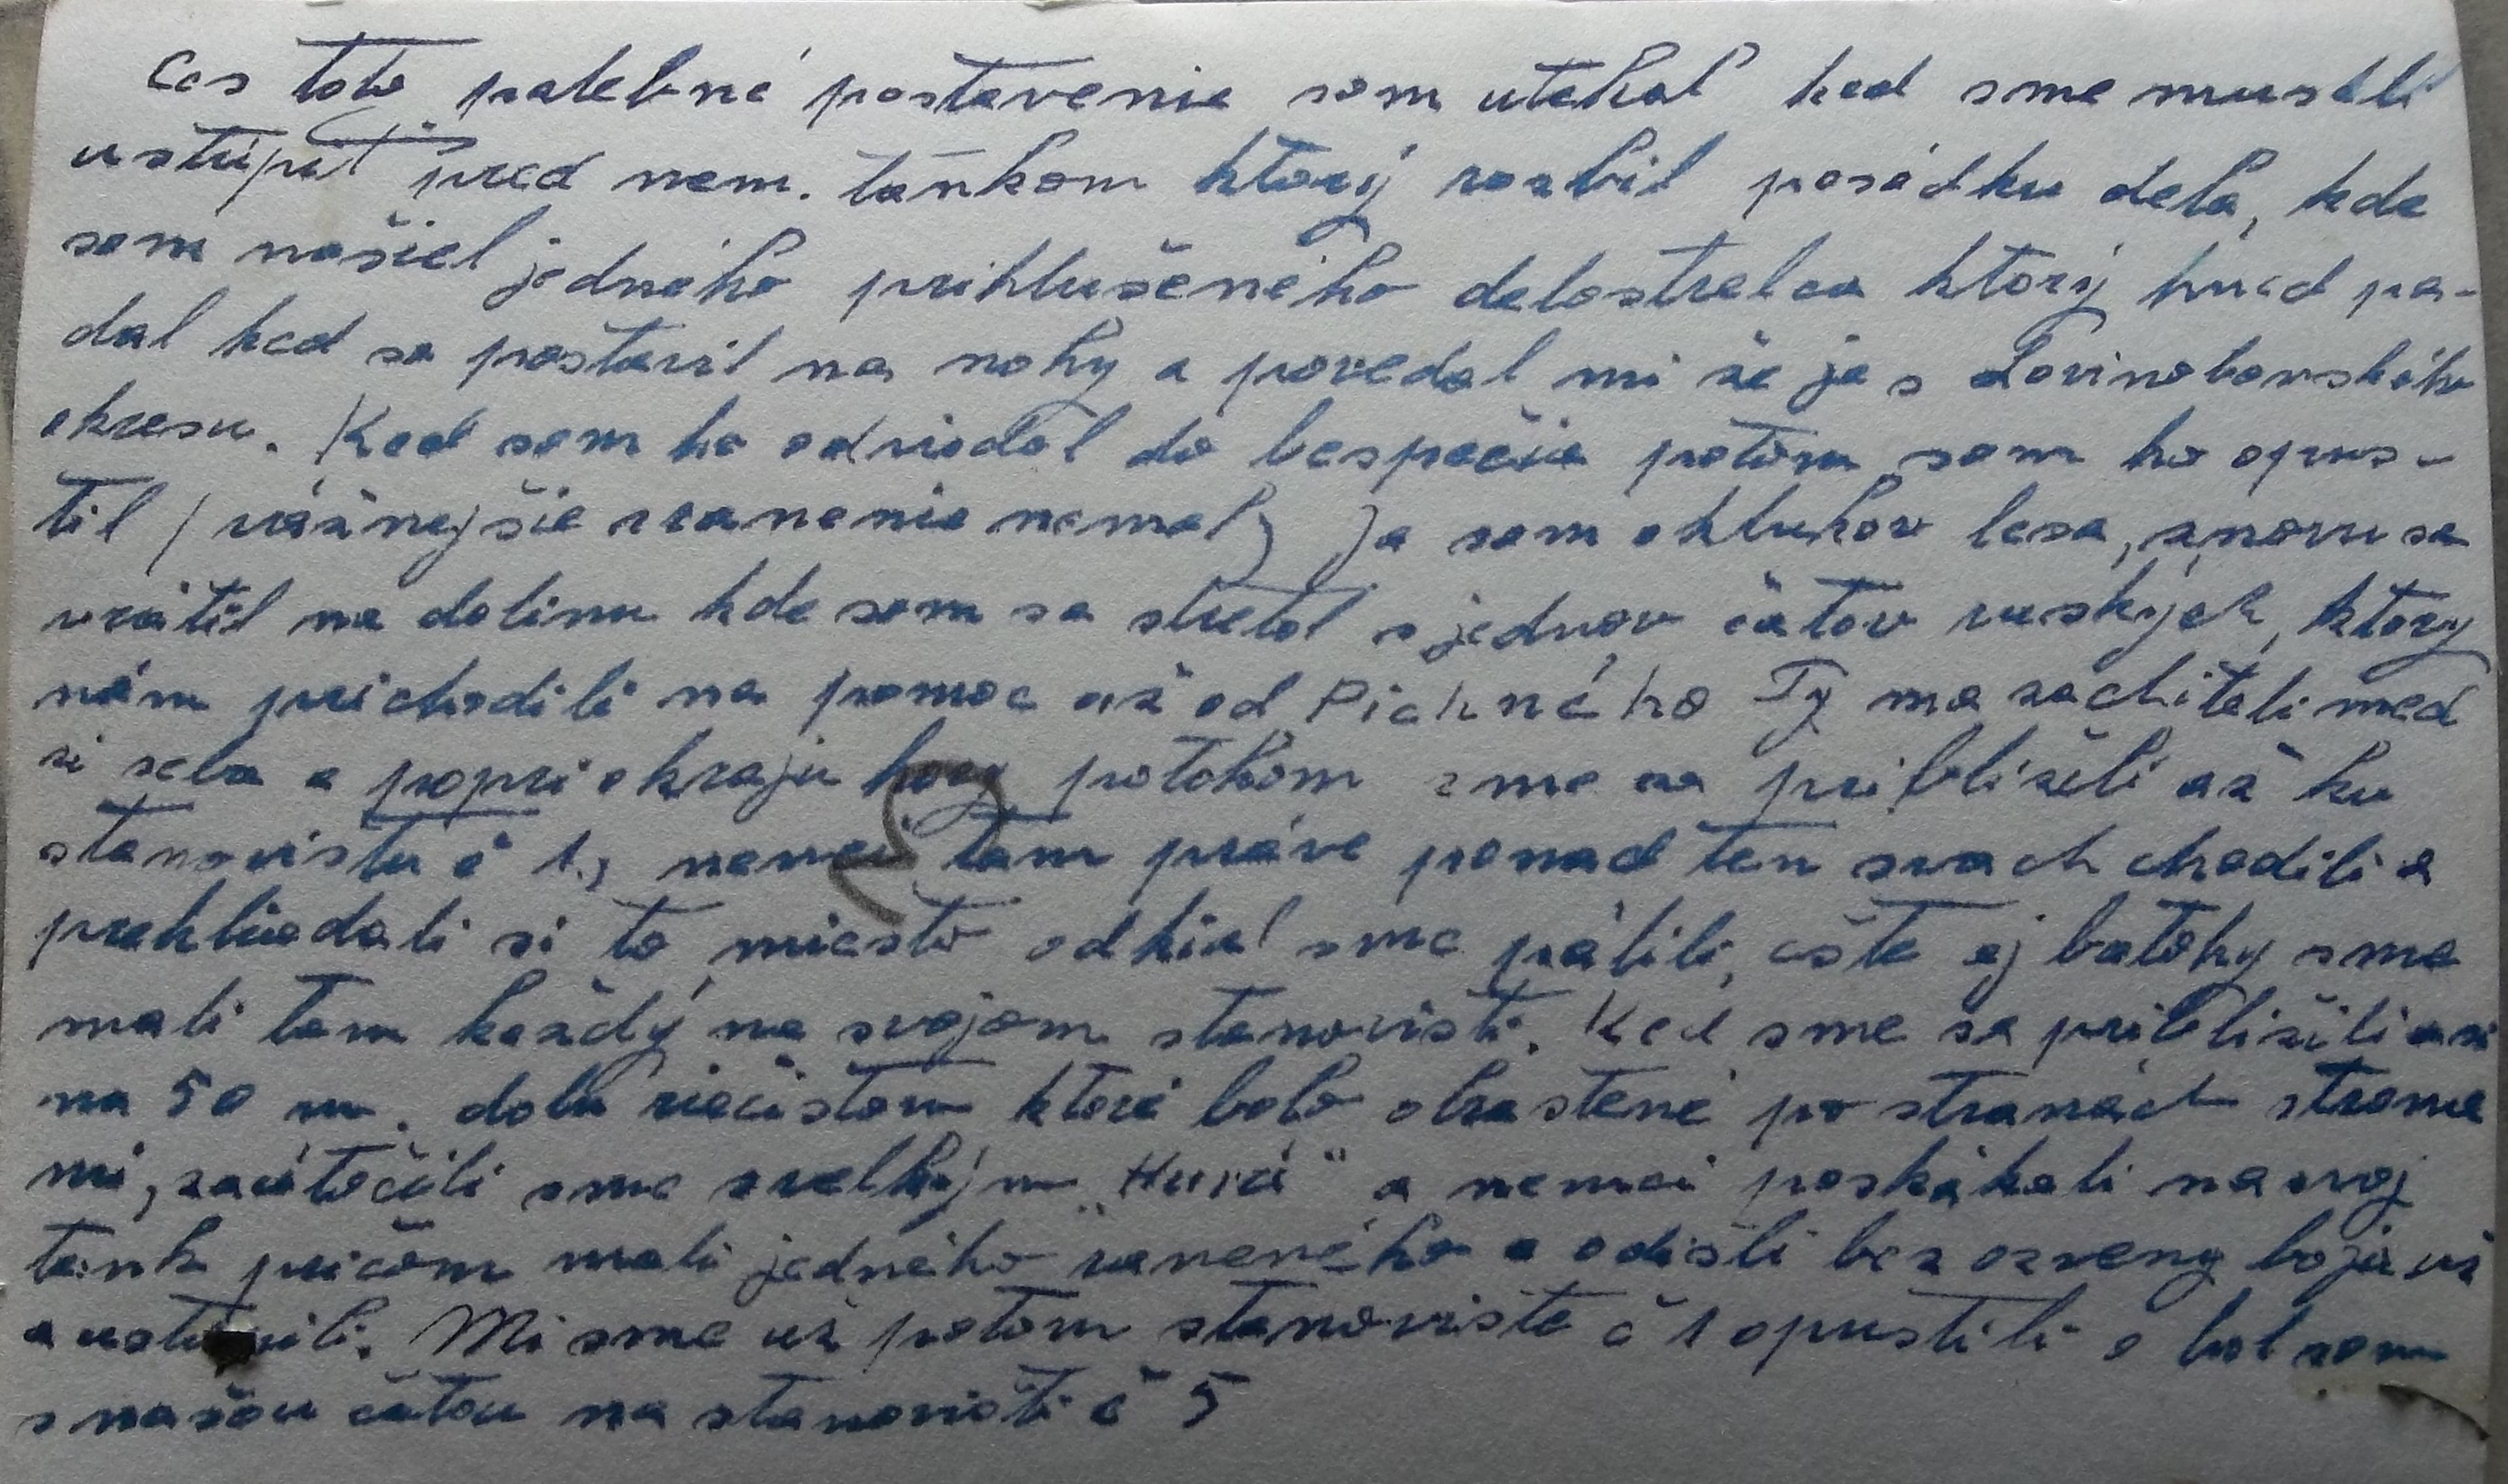 Ces toto palebné postavenie som utekal ked sme museli
ustúpiť pred nem. tankom ktorý rozbil posádku dela, kde
som našiel jedného prihlušeného delostrelca ktorý hned pa-
dal ked sa postavil na nohy a povedal mi že je s Lovinobanského
okresu. Ked som ho odviedol do bespečia potom som ho opus-
til (vážnejšie ranenie nemal) Ja som okluhov lesa, znovu sa
vrátil na dolinu kde som sa stretol s jednov čatov ruských, ktorý
nám prichodili na pomoc až od Pichného Ty ma zachitili med
zi seba a popri okraju hory potokom sme sa približili až ku
stanovistu č 1., nemci tam práve ponad ten svach chodili a
prehliadali si to miesto odkial sme pálili, ešte aj batohy sme
mali tam každý na svojom stanovisti. Ked sme sa približili asi
na 50 m. dolu riečistom ktoré bolo obrastené po stranách stroma
mi, zaútočili sme svelkým „Hurá" a nemci poskákali na svoj
tank pričom mali jedného raneného a odišli bez ozveny boja už
a ustúpili. Mi sme už potom stanovište č 1 opustili a bol som
s našou čatou na stanovisti č 5